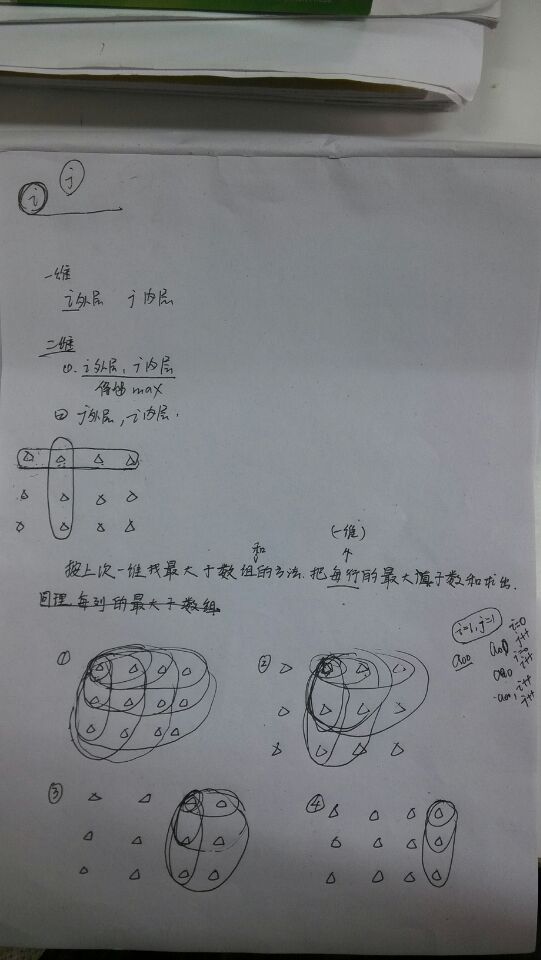 i j
一维
i外层 j内层
二维
①. i外层, j内层
max
j外层, i内层.
(一维)
和
按上次一维找最大子数组的方法.把每行的最大子数和求出.
同理.每列的最大子数组.
i=1, j=1
i=0
a00
j++
i++
i++
j++
①
②
③
④